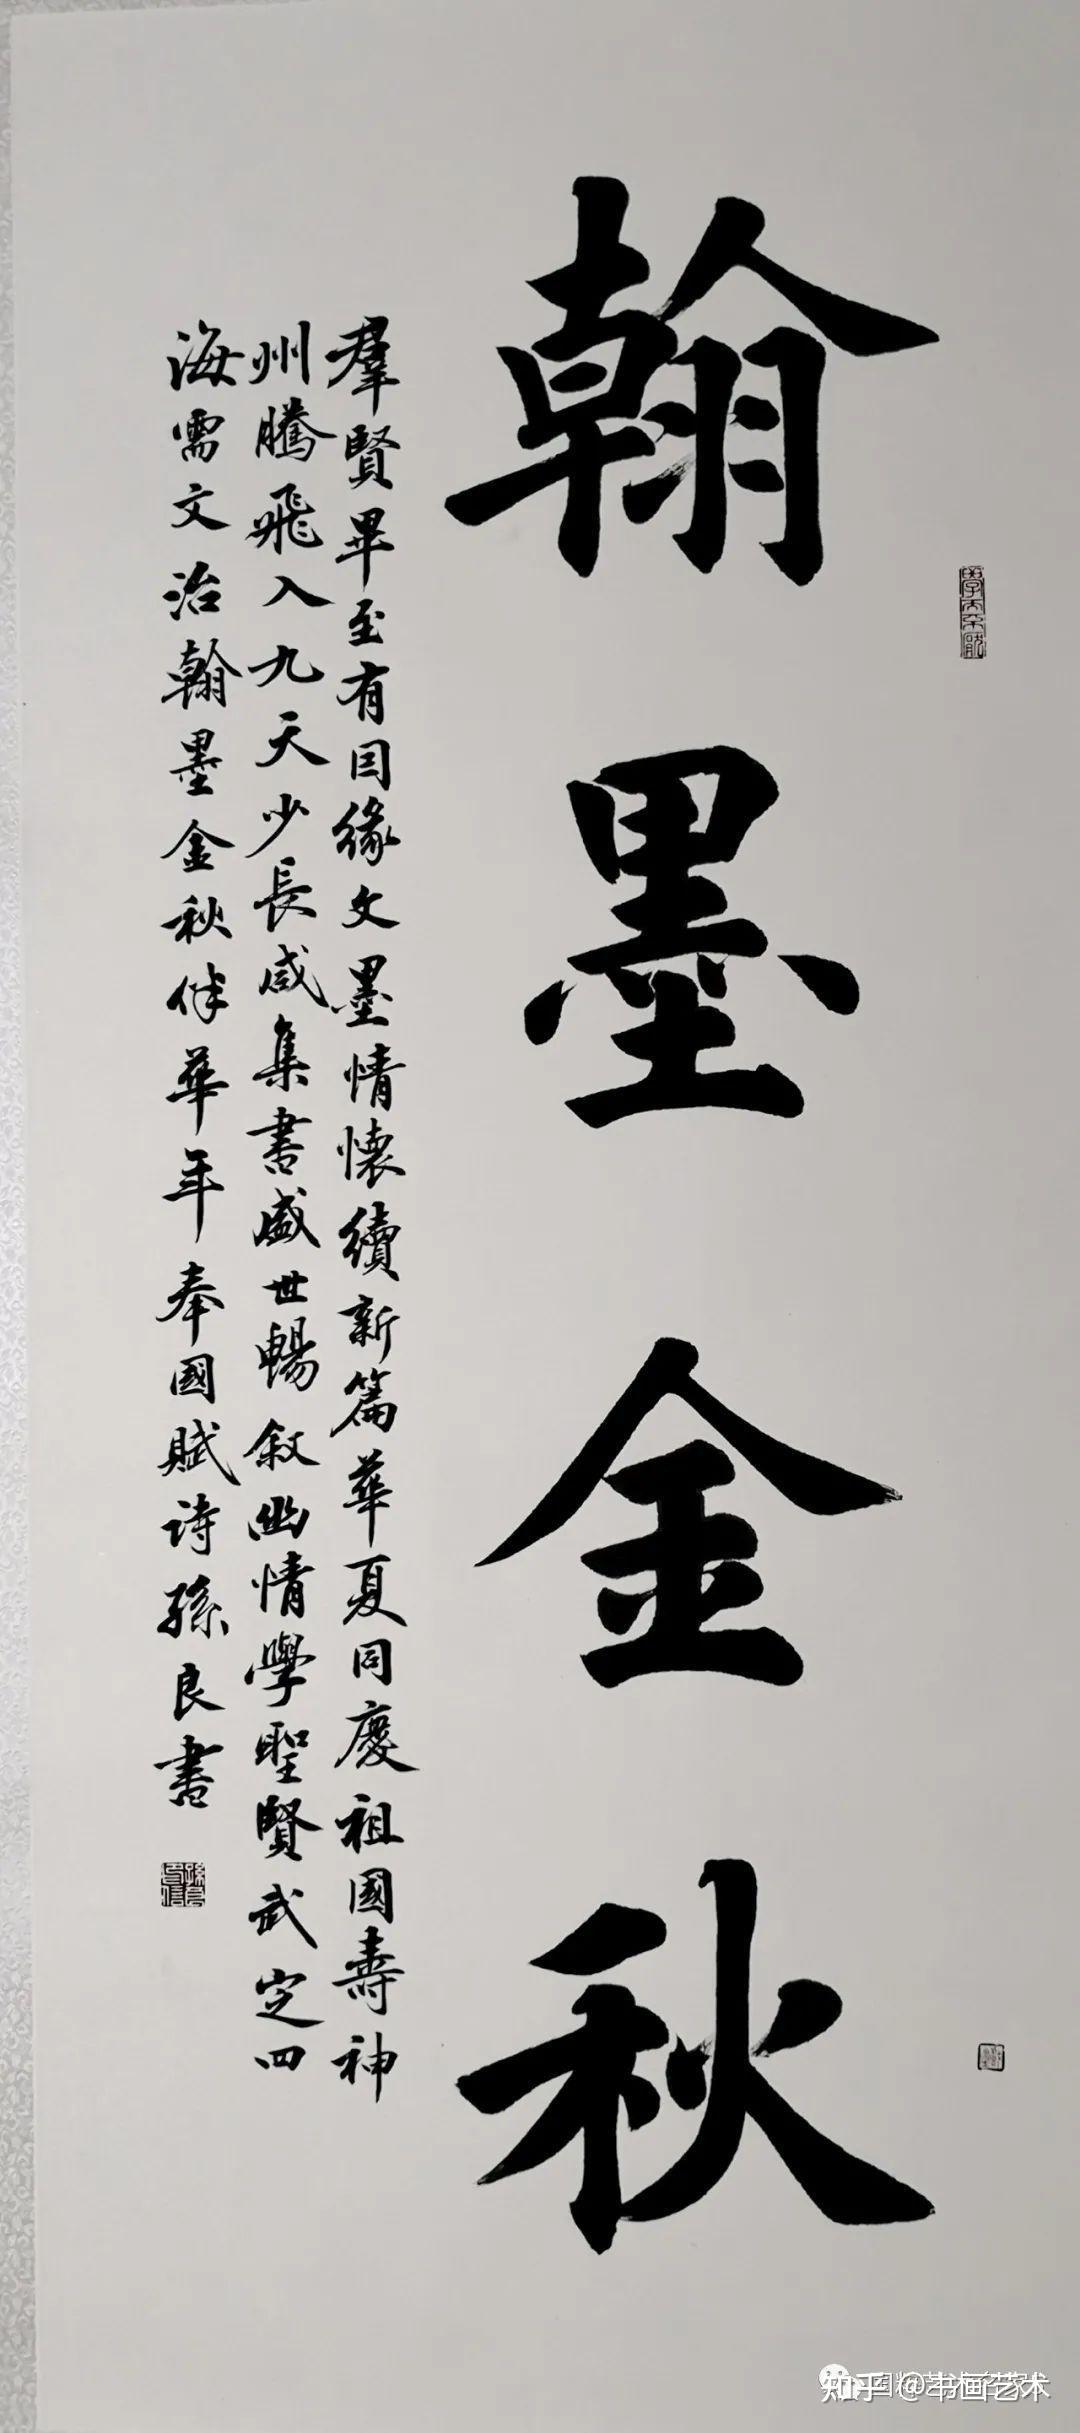 翰墨金秋
羣賢畢至有因緣文墨情懷續新篇華夏同慶祖國壽神
州騰飛入九天少長咸集書盛世暢敘幽情學聖賢武定四
海需文治翰墨金秋伴華年奉國賦诗孫良書
知乎 @书画艺术